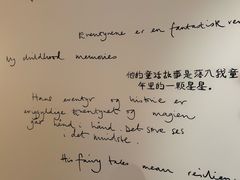 Eventyrene er en fantastisk
My childhood memories
他的童话故事是落入我童
年里的一颗星星。
Hans eventyr og historie er
og magien
går hånd i hånd. Det store ses
i det mindste.
His fairy tales mean